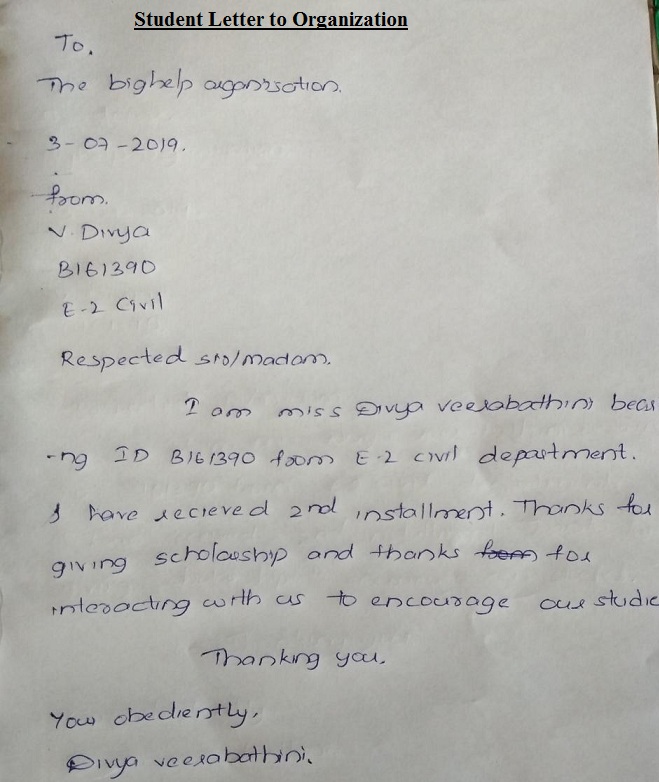 Student Letter to Organization
To,
The bighelp organisation.
3-07-2019.
from.
V. Divya
B161390
E-2 Civil
Respected sir/madam.
I am miss Divya veerabathini bear
-ng ID B161390 from E-2 civil department.
I have recieved 2nd installment. Thanks for
giving scholarship and thanks from for
interacting with us to encourage our studie
Thanking you,
Your obediently,
Divya veerabathini.